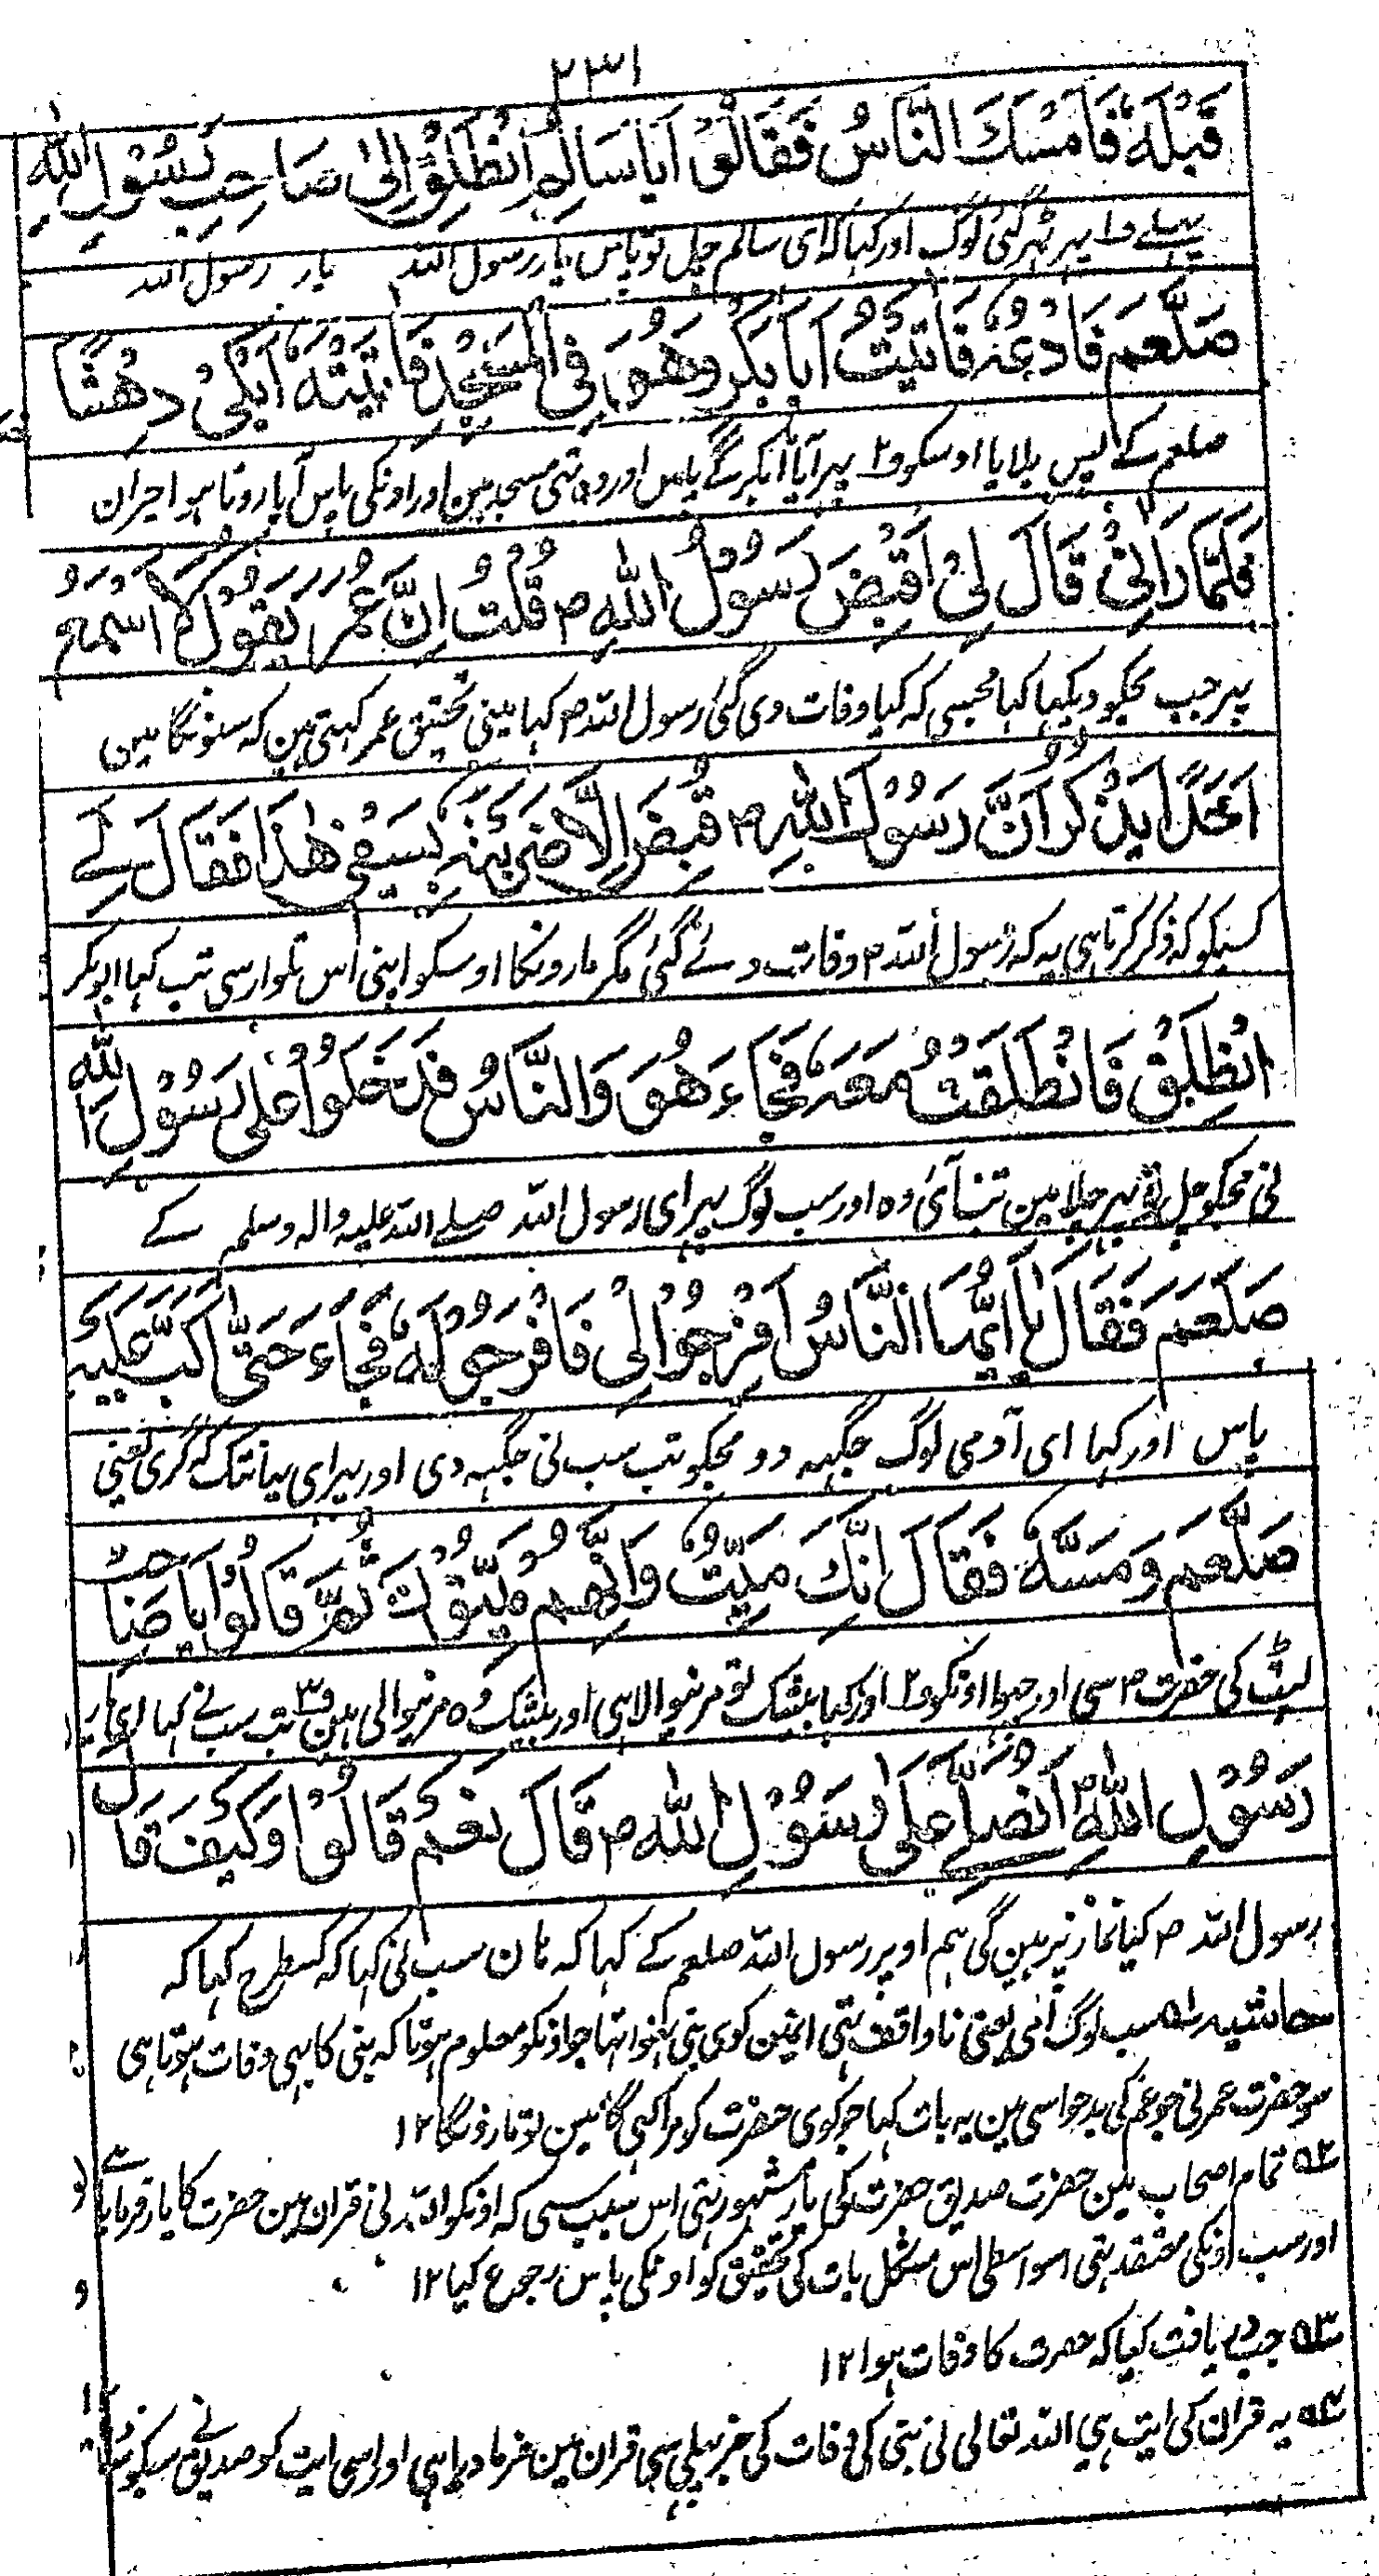 ٢٣١
قَبْلَهٗ فَاَمْسَكَ النَّاسُ فَقَالُوْ اَیَا سَالِمُ انْطَلِقْ اِلٰى صَاحِبِ رَسُوْلِ اللّٰهِ
پہلے ف۱ پہر ٹہر گئی لوگ اور کہا کہ ای سالم چل تو پاس یار رسول اللہ یار رسول اللہ
صَلَّعَمَ فَادْعُهُ فَاَتَيْتُ اَبَا بَكْرٍ وَهُوَ فِى الْمَسْجِدِ فَاَتَيْتُهُ اَبْكِىْ دَهِشًا
صلعم کے پس بلایا اوسکو ف۲ پہر آیا ابابکر کے پاس اور وہ تہی مسجد مین اور اونکی پاس آیا روتا ہوا حیران
فَلَمَّا رَاٰنِىْ قَالَ لِىْ اَقُبِضَ رَسُوْلُ اللّٰهِ ۴ قُلْتُ اِنَّ عُمَرَ يَقُوْلُ لَا اَسْمَعُ
پہر جب مجکو دیکہا کہا مجسی کہ کیا وفات دی گئی رسول اللہ ۴ کہا مینی تحقیق عمر کہتی ہین کہ سنونگا مین
اَحَدًا يَذْكُرُ اَنَّ رَسُوْلَ اللّٰهِ ۴ قُبِضَ اِلَّا ضَرَبْتُهُ بِسَيْفِىْ هٰذَا فَقَالَ لِے
کسیکو کہ ذکر کرتا ہی یہ کہ رسول اللہ ۴ وفات دئے گئی مگر مارونگا اوسکو اپنی اس تلوار سی تب کہا ابوبکر
انْطَلِقْ فَانْطَلَقْتُ مَعَهٗ فَجَاءَ هُوَ وَالنَّاسُ قَدْ دَخَلُوْا عَلٰى رَسُوْلِ اللّٰهِ
نی مجکو چل تو پہر چلا مین تب آئی وہ اور سب لوگ پہر ای رسول اللہ صلے اللہ علیہ والہ وسلم کے
صَلَعَمَ فَقَالَ يَا اَيُّهَا النَّاسُ اَفْرِجُوْا لِىْ فَافْرَجُوْ لَهٗ فَجَاءَ حَتّٰى اَكَبَّ عَلَيْهِ
پاس اور کہا ای آدمی لوگ جگہہ دو مجکو تب سب نی جگہہ دی اور پہر ای یہانتک کہ گری یعنی
صَلَّعَمَ وَمَسَّهٗ فَقَالَ اِنَّكَ مَيِّتٌ وَاِنَّهُمْ مَيِّتُوْنَ ثُمَّ قَالُوْا يَا صَاحِبَ
لپٹ کی حضرت ۴ سی اور چہوا اونکو ف۲ اور کہا بیشک تو مرنیوالا ہی اور بیشک وہ مرنیوالی ہین ف۳ تب سب نے کہا ای یار
رَسُوْلِ اللّٰهِ ۴ اَنُصَلِّے عَلٰى رَسُوْلِ اللّٰهِ ۴ قَالَ نَعَمْ قَالُوْا وَكَيْفَ قَالَ
رسول اللہ ۴ کیا نماز پڑہین گی ہم اوپر رسول اللہ صلعم کے کہا کہ ہان سب نی کہا کہ کسطرح کہا کہ
حاشیہ ف۱ سب لوگ اُمی یعنی ناواقف تہی اینین کوی نبی نہوا تہا جو اونکو معلوم ہوتا کہ نبی کا بہی وفات ہوتا ہی
سو حضرت عمر نی جو غم کی بدحواسی مین یہ بات کہا جو کوی حضرت کو مرا کہی گا مین تو مارونگا ۱۲
ف۲ تمام اصحاب مین حضرت صدیق حضرت کی یار مشہور تہی اس سبب سی کہ اونکو اللہ نی قران مین حضرت کا یار فرمایا ہے
اور سب اونکی معتقد تہی اسواسطی اس مشکل بات کی تحقیق کو اونکی پاس رجوع کیا ۱۲
ف۳ جب دریافت کیا کہ حضرت کا وفات ہوا ۱۲
ف۴ یہ قران کی ایت ہی اللہ تعالی نی نبی کی وفات کی خبر پہلی ہی قران مین فرما دیا ہی اور اسی ایت کو صدیق نے سبکو سنایا ۱۲